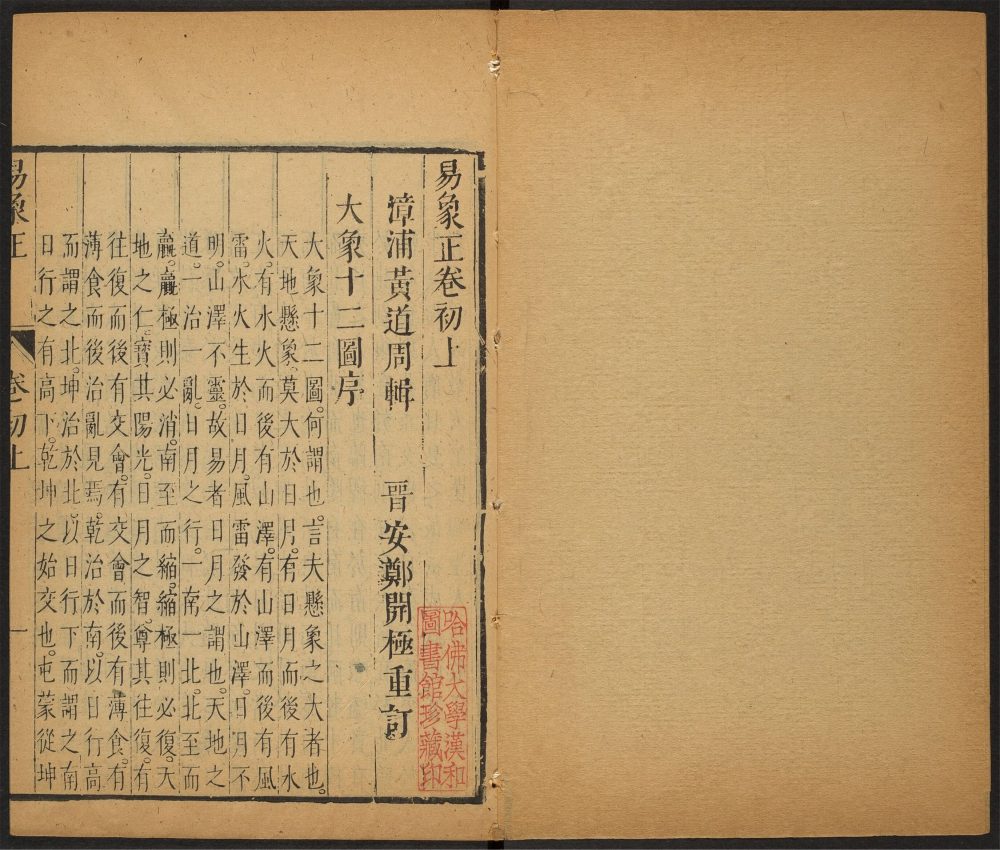 易象正卷初上
漳浦黃道周輯　晉安鄭開極重訂
大象十二圖序
大象十二圖。何謂也。言夫懸象之大者也。
天地懸象。莫大於日月。有日月而後有水
火。有水火而後有山澤。有山澤而後有風
雷。水火生於日月。風雷發於山澤。日月不
明。山澤不靈。故易者日月之謂也。天地之
道。一治一亂。日月之行。一南一北。北至而
羸。羸極則必消。南至而縮。縮極則必復。天
地之仁。寶其陽光。日月之智。尊其往復。有
往復而後有交會。有交會而後有薄食。有
薄食而後治亂見焉。乾治於南。以日行高
而謂之北。坤治於北。以日行下而謂之南
日行之有高下。乾坤之始交也。屯蒙從坤
易象正
卷初上
一
哈佛大學漢和
圖書館珍藏印